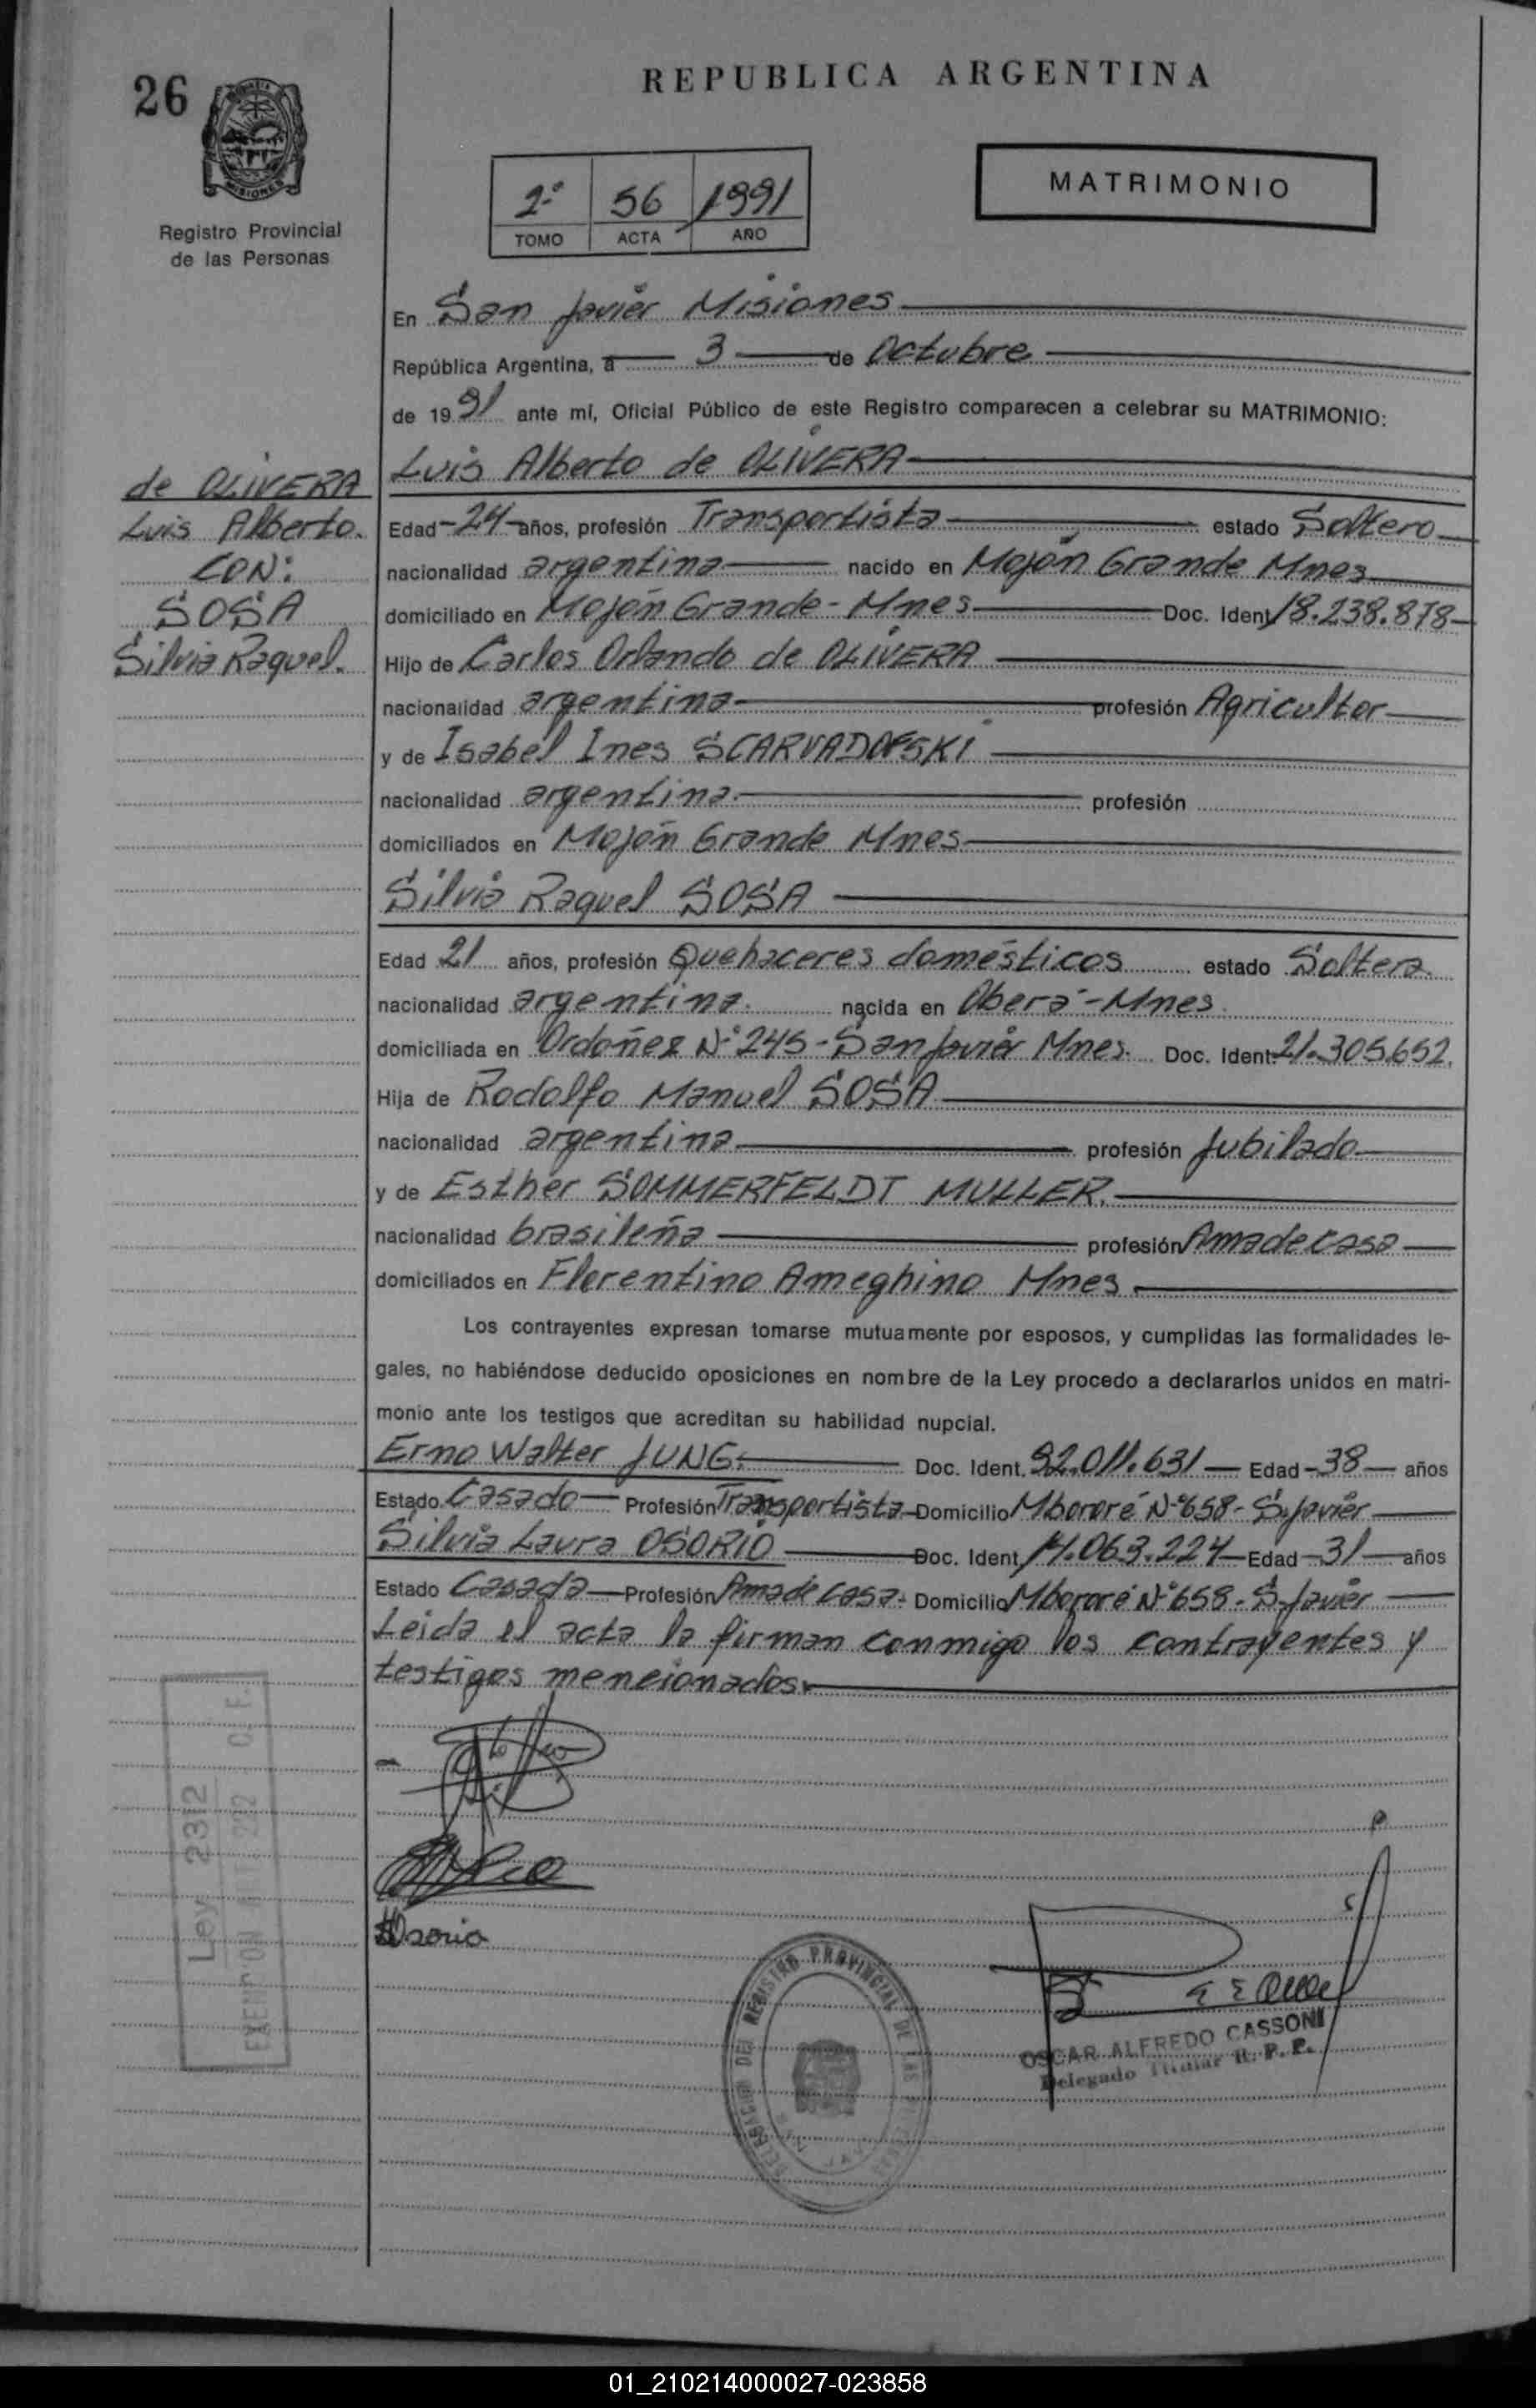 26
REPUBLICA ARGENTINA
MISIONES
Registro Provincial
de las Personas
2º 56 1991
TOMO ACTA AÑO
MATRIMONIO
En San Javier Misiones
República Argentina, a 3 de Octubre
de 1991 ante mí, Oficial Público de este Registro comparecen a celebrar su MATRIMONIO:
de OLIVERA
Luis Alberto.
CON:
SOSA
Silvia Raquel.
Luis Alberto de OLIVERA
Edad 24 años, profesión Transportista estado Soltero
nacionalidad argentina nacido en Mojón Grande Mnes
domiciliado en Mojón Grande - Mnes Doc. Ident 18.238.878
Hijo de Carlos Orlando de OLIVERA
nacionalidad argentina profesión Agricultor
y de Isabel Ines
nacionalidad argentina. profesión
domiciliados en Mojón Grande Mnes
Silvia Raquel SOSA
Edad 21 años, profesión Quehaceres domésticos estado Soltera
nacionalidad argentina. nacida en Oberá - Mnes.
domiciliada en Ordoñez Nº 245 - San Javier Mnes. Doc. Ident. 21.305.652.
Hija de Rodolfo Manuel SOSA
nacionalidad argentina profesión Jubilado
y de Esther SOMMERFELDT MULLER.
nacionalidad brasileña profesión Ama de casa
domiciliados en Florentino Ameghino Mnes.
Los contrayentes expresan tomarse mutuamente por esposos, y cumplidas las formalidades le-
gales, no habiéndose deducido oposiciones en nombre de la Ley procedo a declararlos unidos en matri-
monio ante los testigos que acreditan su habilidad nupcial.
Erno Walter JUNG. Doc. Ident. 92.011.631 Edad 38 años
Estado Casado Profesión Transportista Domicilio Mbororé Nº 658 - S. Javier
Silvia Laura OSORIO Doc. Ident. 14.063.224 Edad 31 años
Estado Casada Profesión Ama de casa. Domicilio Mbororé Nº 658 - S. Javier
Leida el acta la firman conmigo los contrayentes y
testigos mencionados.
Ley 2312
Osorio
REGISTRO PROVINCIAL DE LAS
OSCAR ALFREDO CASSONI
Delegado Titular R. P. P.
01_210214000027-023858